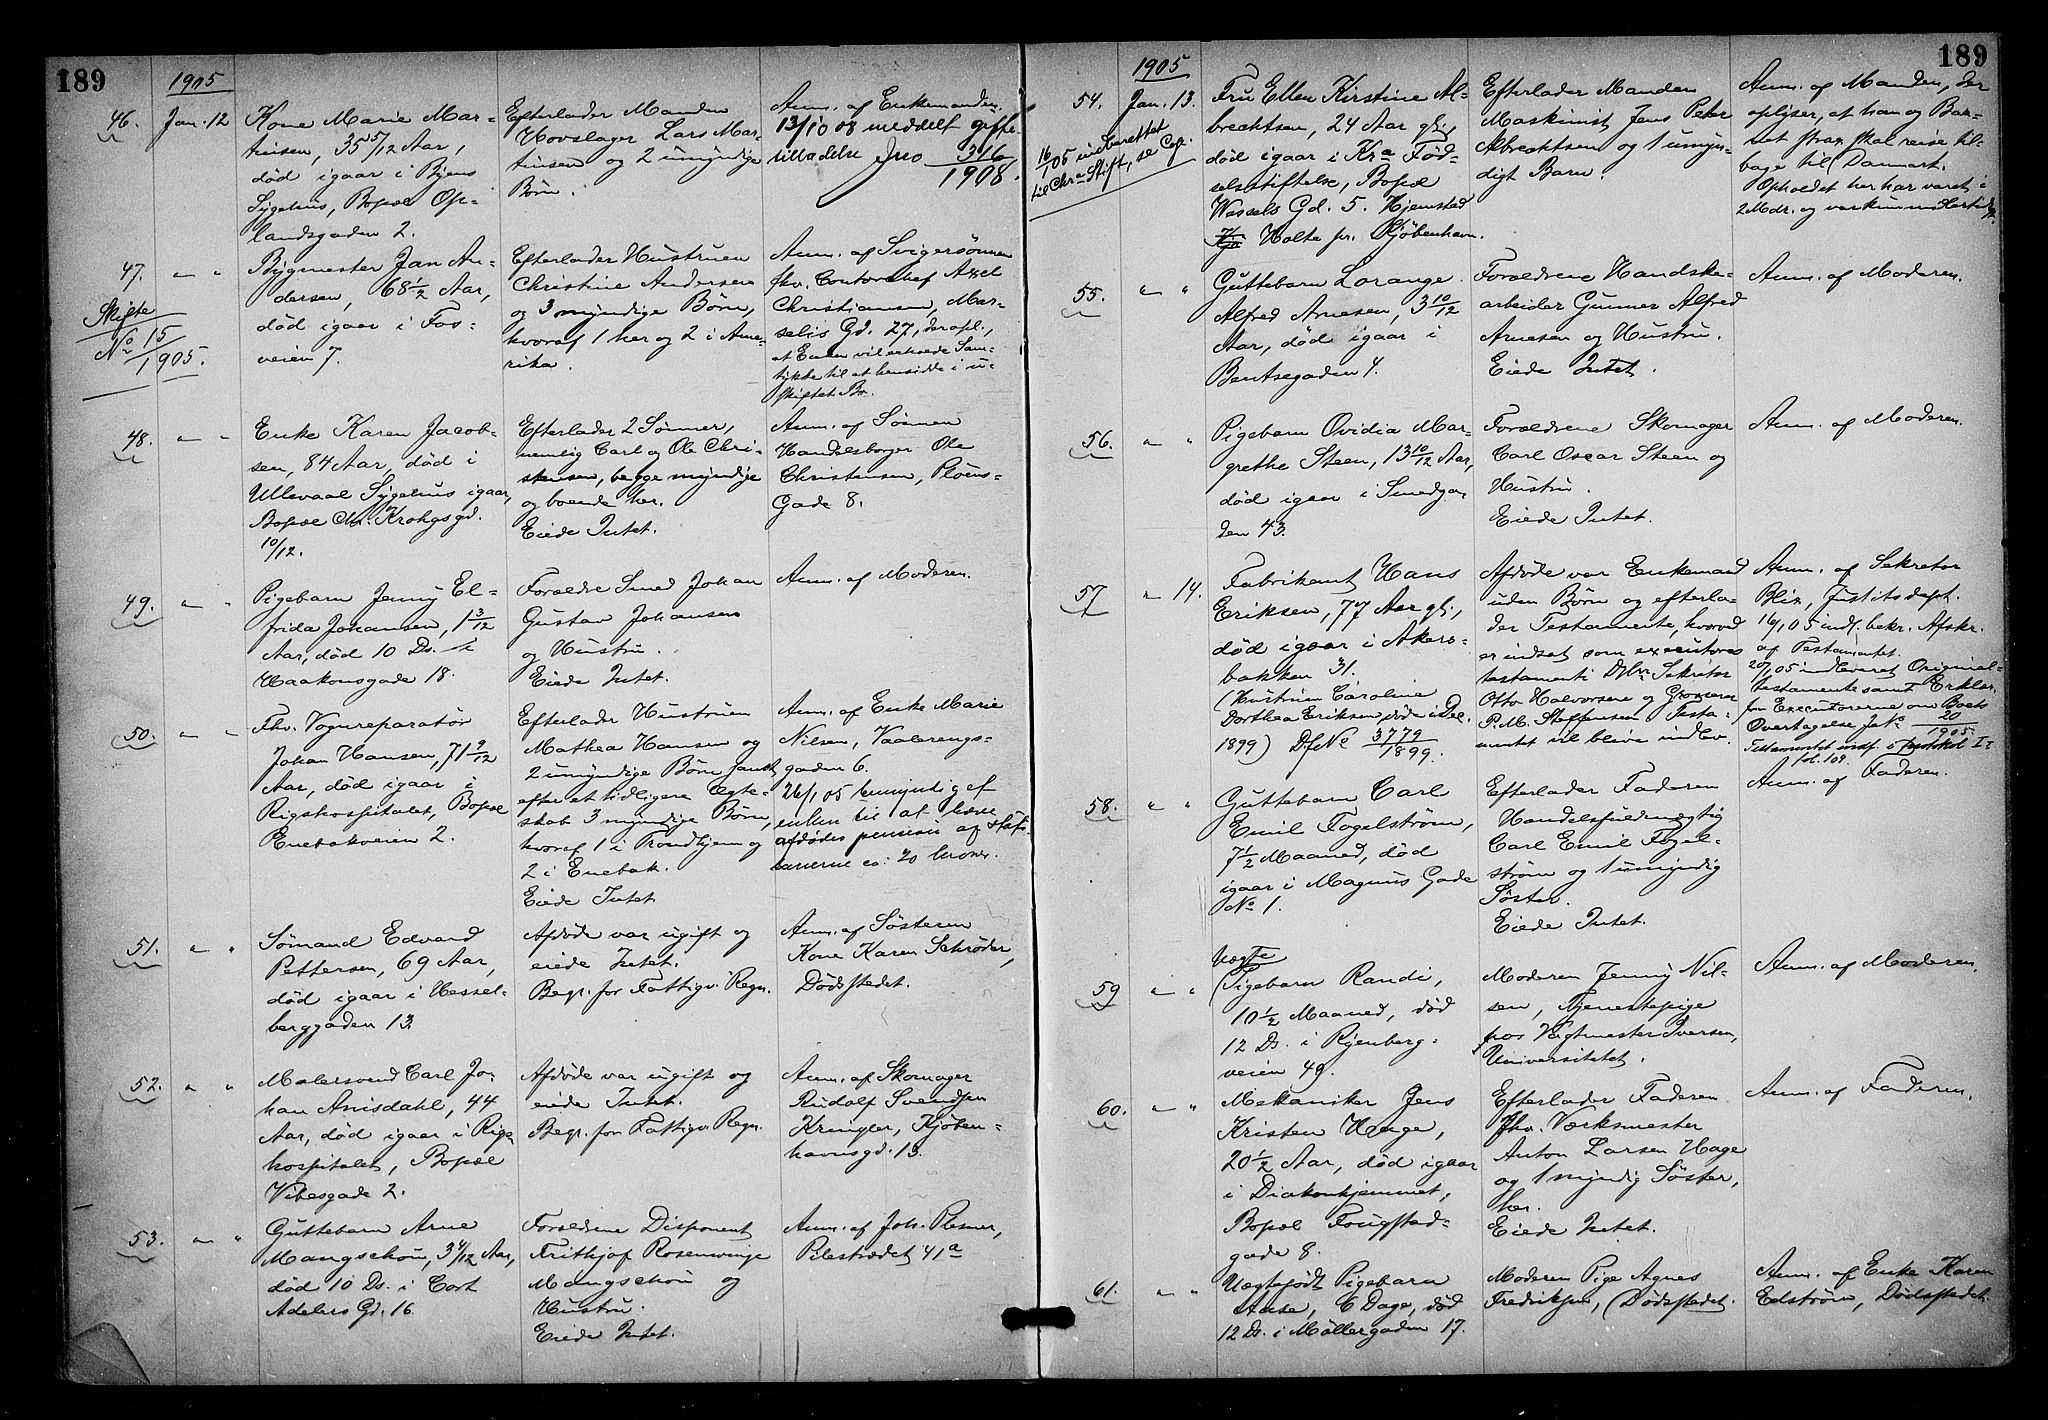 189
1905
46. Jan. 12
Kone Marie Mar-
tinsen, 35 5/12 Aar,
død igaar i Byens
Sygehus, Bopæl Op-
landsgaden 2.
Efterlader Manden
Hovslager Lars Mar-
tinsen og 2 umyndige
Børn.
Anm. af Enkemanden.
13/10 08 meddelt gifte-
tilladelse Jno 316/1908.
47. " "
Skifte
No 15/1905.
Bygmester Jan An-
dersen, 68 1/2 Aar,
død igaar i Fos-
veien 7.
Efterlader Hustruen
Christine Andersen
og 3 myndige Børn,
hvoraf 1 her og 2 i Ame-
rika.
Anm. af Svigersønnen
fhv. Contorchef Axel
Christiansen, Mar-
selis Gd. 27, der opl.,
at Enken vil erhverde Sam-
tykke til at hensidde i u-
skiftet Bo.
48. " "
Enke Karen Jacob-
sen, 84 Aar, død i
Ullevaal Sygehus igaar,
Bopæl Chr. Krohgs gd.
10/12.
Efterlader 2 Sønner,
nemlig Carl og Ole Chri-
stensen, begge myndige
og boende her.
Eiede Intet.
Anm. af Sønnen
Handelsborger Ole
Christensen, Pløens-
Gade 8.
49. " "
Pigebarn Jenny El-
frida Johansen, 1 3/12
Aar, død 10 Ds. i
Haakonsgade 18.
Forældre Smed Johan
Gustav Johansen
og Hustru.
Eiede Intet.
Anm. af Moderen.
50. " "
Fhv. Vognreparatør
Johan Hansen, 71 9/12
Aar, død igaar i
Rigshospitalet, Bopæl
Enebakveien 2.
Efterlader Hustruen
Mathea Hansen og
2 umyndige Børn samt
efter et tidligere Ægte-
skab 3 myndige Børn,
hvoraf 1 i Trondhjem og
2 i Enebak.
Eiede Intet
Anm. af Enke Marie
Nilsen, Vaalerengs-
gaden 6.
26/1 05 bemyndiget
enken til at hæve
afdødes pension af Stats-
banerne ca: 20 kroner.
51. " "
Sømand Edvard
Pettersen, 69 Aar,
død igaar i Hessel-
berggaden 13.
Afdøde var ugift og
eiede Intet.
Begr. for Fattigv. Regn.
Anm. af Søsteren
Kone Karen Schrøder,
Dødsstedet.
52. " "
Malersvend Carl Jo-
han Arnisdahl, 44
Aar, død igaar i Rigs-
hospitalet, Bopæl
Vibesgade 2.
Afdøde var ugift og
eiede Intet.
Begr. for Fattigv. Regn.
Anm. af Skomager
Rudolf Svendsen
Kringler, Kjøben-
havnsgd. 13.
53. " "
Guttebarn Arne
Mangschou, 3 4/12 Aar,
død 10 Ds. i Cort
Adelers Gd. 16.
Forældrene Disponent
Frithjof Rosenvinge
Mangschou og
Hustru.
Eiede Intet.
Anm. af Joh. Plesner,
Pilestrædet 41a
189
1905
54. Jan. 13.
16/1 05 indberettet
til Chr.a Stift, se Cop.
Fru Ellen Kirstine Al-
brechtsen, 24 Aar gl.,
død igaar i Kr.a Fød-
selsstiftelse, Bopæl
Wessels Gd. 5. Hjemsted
Holte pr. Kjøbenhavn.
Efterlader Manden
Maskinist Jens Peter
Albrechtsen og 1 umyn-
digt Barn.
Anm. af Manden, der
oplyser, at han og Bar-
net strax skal reise til-
bage til Danmark.
Opholdet her har varet i
2 Mdr. og var kun midlertidigt.
55. " "
Guttebarn Lorange
Alfred Arnesen, 3 10/12
Aar, død igaar i
Bentsegaden 4.
Forældrene Handske-
arbeider Gunner Alfred
Arnesen og Hustru.
Eiede Intet.
Anm. af Moderen.
56. " "
Pigebarn Ovidia Mar-
grethe Steen, 13 10/12 Aar,
død igaar i Smedga-
den 43.
Forældrene Skomager
Carl Oscar Steen og
Hustru.
Eiede Intet.
Anm. af Moderen.
57 " 14.
Fabrikant Hans
Eriksen, 77 Aar gl.,
død igaar i Akers-
bakken 31.
(Hustruen Caroline
Dorthea Eriksen døde i Dec.
1899) Df No 3779/1899.
Afdøde var Enkemand
uden Børn og efterla-
der Testamente, hvorved
er indsat som executores
testamenti DHrr. Sekretær
Otto Halvorsen og Grosserer
P. M. Steffensen. Testa-
mentet vil blive indlev.
Anm. af Sekretær
Blix, Justitsdept.
16/1 05 indl. bekr. Afskr.
af Testamentet.
20/1 05 indleveret Original-
testamente samt Erklær.
fra Executorerne om Boets
Overtagelse Jno 20/1905.
Testamentet indf. i protokol I
fol. 109.
58. " "
Guttebarn Carl
Emil Fogelstrøm,
7 1/2 Maaned, død
igaar i Magnus Gade
No 1.
Efterlader Faderen
Handelsfuldmægtig
Carl Emil Fogel-
strøm og 1 umyndig
Søster.
Eiede Intet.
Anm. af Faderen.
59 " "
Uægte
Pigebarn Randi,
10 1/2 Maaned, død
12 Ds. i Ryenberg-
veien 49.
Moderen Jenny Nil-
sen, Tjenestepige
hos Vagtmester Iversen,
Universitetet.
Anm. af Moderen.
60. " "
Mekaniker Jens
Kristen Hage,
20 1/2 Aar, død igaar
i Diakonhjemmet,
Bopæl Fougstad-
gade 8.
Efterlader Faderen
fhv. Værksmester
Anton Larsen Hage
og 1 myndig Søster,
her.
Eiede Intet.
Anm. af Faderen.
61. " "
Uægtefødt Pigebarn
Aase, 6 Dage, død
12 Ds. i Møllergaden 17.
Moderen Pige Agnes
Fredriksen, Dødsstedet.
Anm. af Enke Karen
Edstrøm, Dødsstedet.